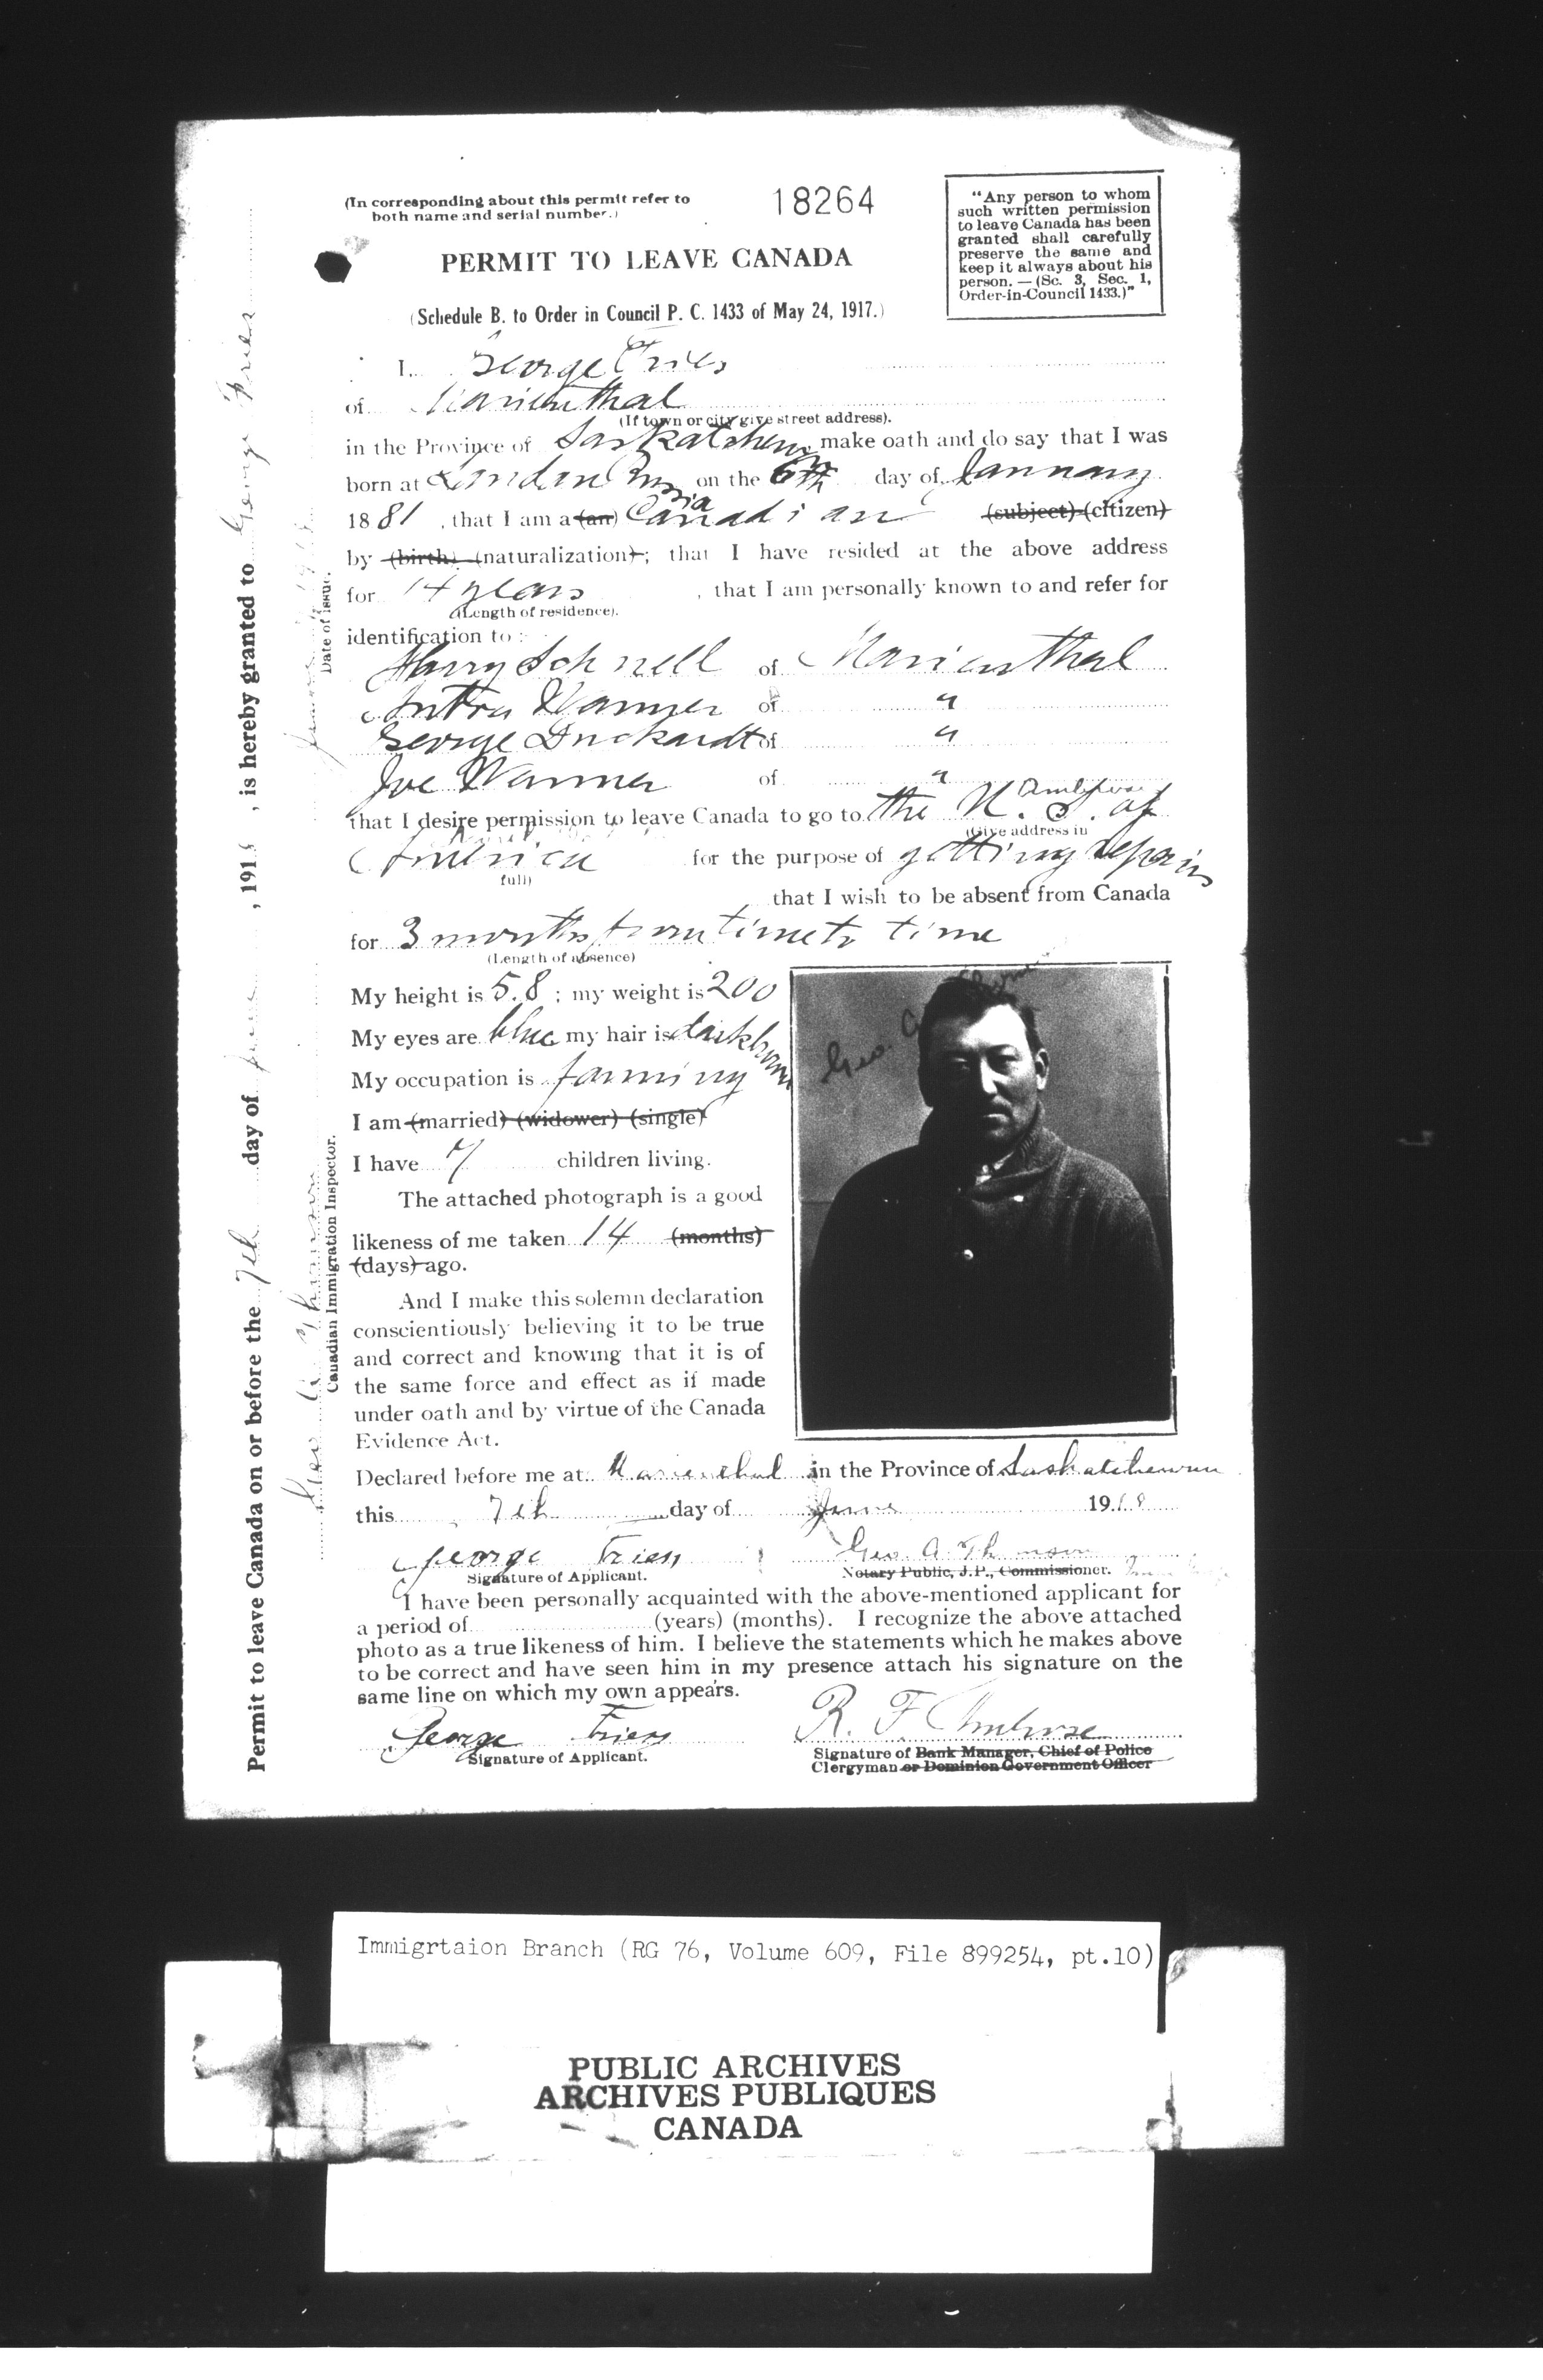 (In corresponding about this permit refer to
both name and serial number.)
18264
"Any person to whom
such written permission
to leave Canada has been
granted shall carefully
preserve the same and
keep it always about his
person. — (Sc. 3, Sec. 1,
Order-in-Council 1433.)"
PERMIT TO LEAVE CANADA
(Schedule B. to Order in Council P. C. 1433 of May 24, 1917.)
I, George Fries
of Marienthal
(If town or city give street address).
in the Province of Saskatchewan make oath and do say that I was
born at Landau Russia on the 6th day of January
1881, that I am a (an) Canadian (subject) (citizen)
by (birth) (naturalization); that I have resided at the above address
for 14 years, that I am personally known to and refer for
(Length of residence).
identification to:
Harry Schnell of Marienthal
Anton Wanner of "
George Duckardt of "
Joe Wanner of "
that I desire permission to leave Canada to go to the U. S. of
(Give address in
America for the purpose of getting repairs
full)
that I wish to be absent from Canada
for 3 months from time to time
(Length of absence)
My height is 5.8; my weight is 200
My eyes are blue my hair is dark brown
My occupation is farming
I am (married) (widower) (single)
I have 7 children living.
The attached photograph is a good
likeness of me taken 14 (months)
(days) ago.
And I make this solemn declaration
conscientiously believing it to be true
and correct and knowing that it is of
the same force and effect as if made
under oath and by virtue of the Canada
Evidence Act.
Geo. A.
Declared before me at Marienthal in the Province of Saskatchewan
this 7th day of June 1918
George Fries Geo. A. Thomson
Signature of Applicant. Notary Public, J.P., Commissioner.
I have been personally acquainted with the above-mentioned applicant for
a period of (years) (months). I recognize the above attached
photo as a true likeness of him. I believe the statements which he makes above
to be correct and have seen him in my presence attach his signature on the
same line on which my own appears.
George Fries R. F. Ambrose
Signature of Applicant. Signature of Bank Manager, Chief of Police
Clergyman or Dominion Government Officer
Permit to leave Canada on or before the 7th day of June, 1918, is hereby granted to George Fries
Geo A Thomson
Canadian Immigration Inspector.
Date of issue.
Immigrtaion Branch (RG 76, Volume 609, File 899254, pt.10)
PUBLIC ARCHIVES
ARCHIVES PUBLIQUES
CANADA